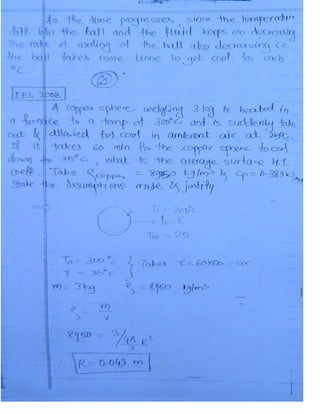 As the time progresses, since the temperature
diff b/w the ball and the fluid keeps on decreasing
the rate of cooling of the ball also decreasing i.e.
the ball takes more time to get cool for each
°C.
IES 2003
A copper sphere weighing 3 kg is heated in
a furnace to a temp of 300°C and is suddenly take
out & allowed to cool in ambient air at 25°C.
If it takes 60 min for the copper sphere to cool
down to 35°C, what is the average surface H.T.
coeff. Take ρcopper = 8950 kg/m³ & Cp = 0.383 kJ
State the assumptions made & justify.
T∞ = 25
T₀ = 300°C
T = 35°C
Takes τ = 60x60 = sec
m = 3 kg
ρ = 8950 kg/m³
ρ = m/V
8950 = 3/ 4π/3 R³
R = 0.043 m